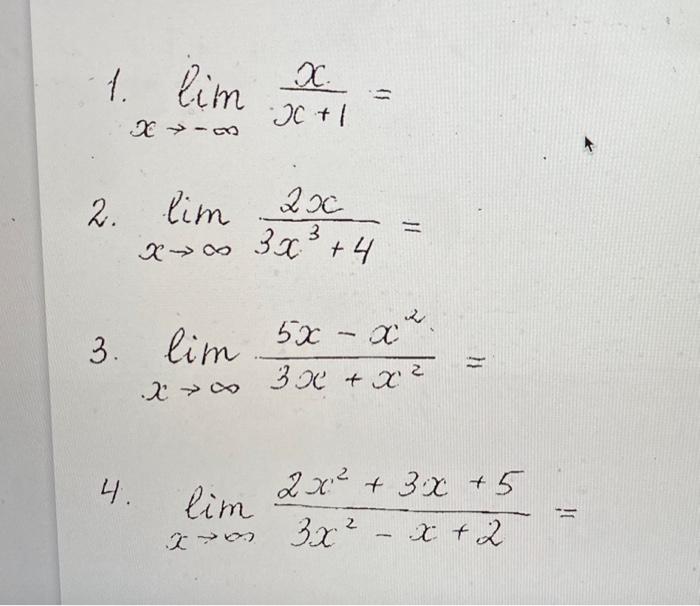 1. lim x→-∞ x/(x+1) =
2. lim x→∞ 2x/(3x³+4) =
3. lim x→∞ (5x - x²)/(3x + x²) =
4. lim x→∞ (2x² + 3x + 5)/(3x² - x + 2) =